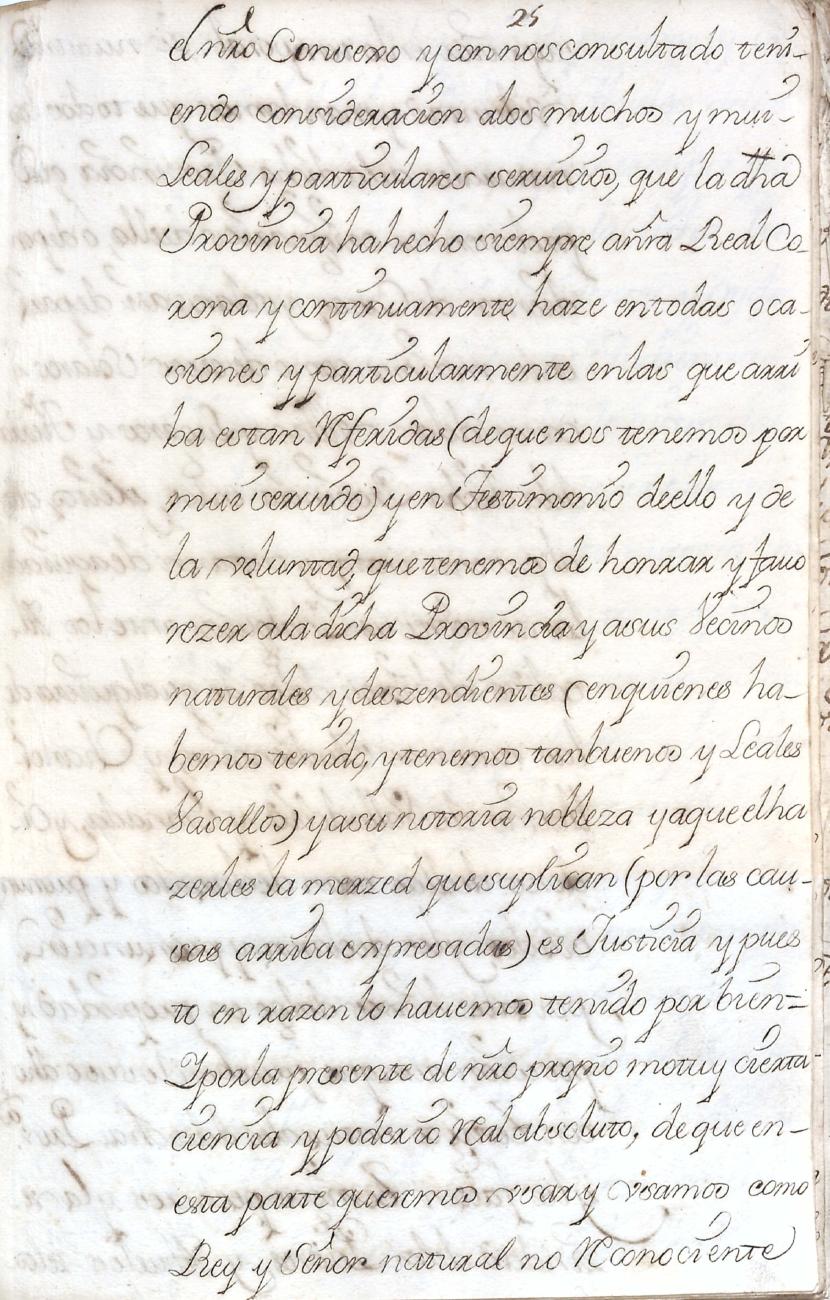 25
el nr̃o Consexo y con nos consultado teni-
endo consideracion alos muchos y mui-
Leales y particulares seruicios, que la dha
Provincia ha hecho siempre a nr̃a Real Co-
rona y continuamente haze en todas oca-
siones y particularmente en las que arri
ba estan Referidas (de que nos tenemos por
mui seruido) y en Testimonio de ello y de
la voluntad, que tenemos de honrar y fauo
rezer ala dicha Provincia y a sus Vecinos
naturales y deszendientes (en quienes ha-
bemos tenido, y tenemos tan buenos y Leales
Vasallos) y a su notoria nobleza y a que el ha
zerles la merzed que suplican (por las cau-
sas arriba expresadas) es Justicia y pues
to en razon lo hauemos tenido por bien=
Y por la presente de nr̃o proprio motu y cierta
ciencia y poderio Real absoluto, de que en-
esta parte queremos vsar y vsamos como
Rey y Señor natural no Reconociente